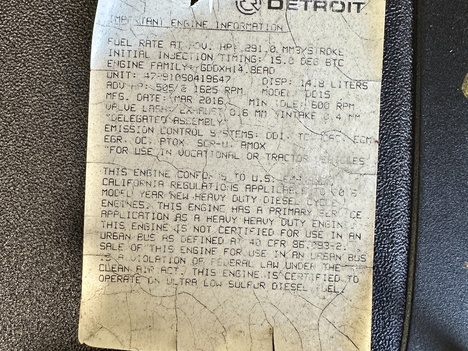 DETROIT
IMPORTANT ENGINE INFORMATION
FUEL RATE AT ADV. HP: 291.0 MM3/STROKE
INITIAL INJECTION TIMING: 15.0 DEG BTC
ENGINE FAMILY: GDDXH14.8EAD
UNIT: DISP: 14.8 LITERS
ADV HP: 505 1625 RPM MODEL: DD15
MFG. DATE: MAR 2016 MIN IDLE: 600 RPM
VALVE LASH: 0.6 MM INTAKE 0.4 MM
"DELEGATED ASSEMBLY"
EMISSION CONTROL SYSTEMS: DDI, ECM
EGR, OC, PTOX, SCR-U, AMOX
"FOR USE IN VOCATIONAL OR TRACTOR VEHICLES
THIS ENGINE CONFORMS TO U.S.
CALIFORNIA REGULATIONS
MODEL YEAR NEW HEAVY DUTY DIESEL CYCLE
ENGINES. THIS ENGINE HAS A PRIMARY SERVICE
APPLICATION AS A HEAVY HEAVY DUTY ENGINE
THIS ENGINE IS NOT CERTIFIED FOR USE IN AN
URBAN BUS AS DEFINED AT 40 CFR 86.093-2.
SALE OF THIS ENGINE FOR USE IN AN URBAN BUS
IS A VIOLATION OF FEDERAL LAW UNDER THE
CLEAN AIR ACT. THIS ENGINE IS CERTIFIED TO
OPERATE ON ULTRA LOW SULFUR DIESEL FUEL.